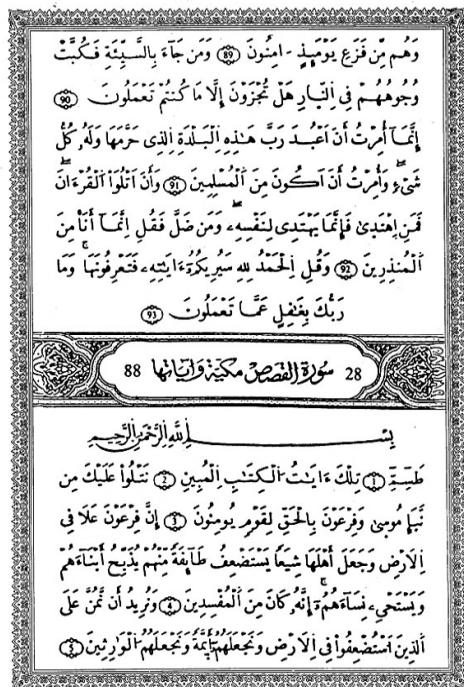 وَهُم مِّن فَزَعِ يَوْمَئِذٍ ـ امِنُونَ 89 وَمَن جَآءَ بِالسَّيِّئَةِ فَكُبَّتْ
وُجُوهُهُمْ فِي الْنّارِ هَلْ تُجْزَوْنَ إِلَّا مَا كُنتُمْ تَعْمَلُونَ 90
إِنَّمَآ أُمِرْتُ أَنَ اَعْبُدَ رَبَّ هَٰذِهِ اِلْبَلْدَةِ اِلذِي حَرَّمَهَا وَلَهُۥ كُلُّ
شَيْءٖ وَأُمِرْتُ أَنَ اَكُونَ مِنَ اَلْمُسْلِمِينَ 91 وَأَنَ اَتْلُوَاْ اَلْقُرْءَانَ
فَمَنِ اِهْتَدَىٰ فَإِنَّمَا يَهْتَدِي لِنَفْسِهِۦ وَمَن ضَلَّ فَقُلِ اِنَّمَآ أَنَاْ مِنَ
اَلْمُنذِرِينَ 92 وَقُلِ اِلْحَمْدُ لِلهِ سَيُرِيكُمُۥٓ ءَايَٰتِهِۦ فَتَعْرِفُونَهَا وَمَا
رَبُّكَ بِغَٰفِلٍ عَمَّا تَعْمَلُونَ 93
28 سورة القصص مكية وآياتها 88
بِسْمِ اِللَّهِ اِلرَّحْمَٰنِ اِلرَّحِيمِ
طَسِٓمِّٓ 1 تِلْكَ ءَايَٰتُ اُلْكِتَٰبِ اِلْمُبِينِ 2 نَتْلُواْ عَلَيْكَ مِن
نَّبَإِ مُوسَىٰ وَفِرْعَوْنَ بِالْحَقِّ لِقَوْمٖ يُومِنُونَ 3 إِنَّ فِرْعَوْنَ عَلَا فِي
اِلَارْضِ وَجَعَلَ أَهْلَهَا شِيَعاً يَسْتَضْعِفُ طَآئِفَةً مِّنْهُمْ يُذَبِّحُ أَبْنَآءَهُمْ
وَيَسْتَحْيِۦ نِسَآءَهُمُۥٓ إِنَّهُۥ كَانَ مِنَ اَلْمُفْسِدِينَ 4 وَنُرِيدُ أَن نَّمُنَّ عَلَى
اَلذِينَ اَسْتُضْعِفُواْ فِي اِلَارْضِ وَنَجْعَلَهُمُۥٓ أَئِمَّةً وَنَجْعَلَهُمُ اُلْوَٰرِثِينَ 5